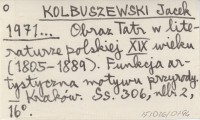 KOLBUSZEWSKI Jacek
1971... Obraz Tatr w lite-
raturze polskiej XIX wieku
(1805-1889). Funkcja ar-
tystyczna motywu przyrody.
Kraków. Ss. 306, nlb 2,
16°.